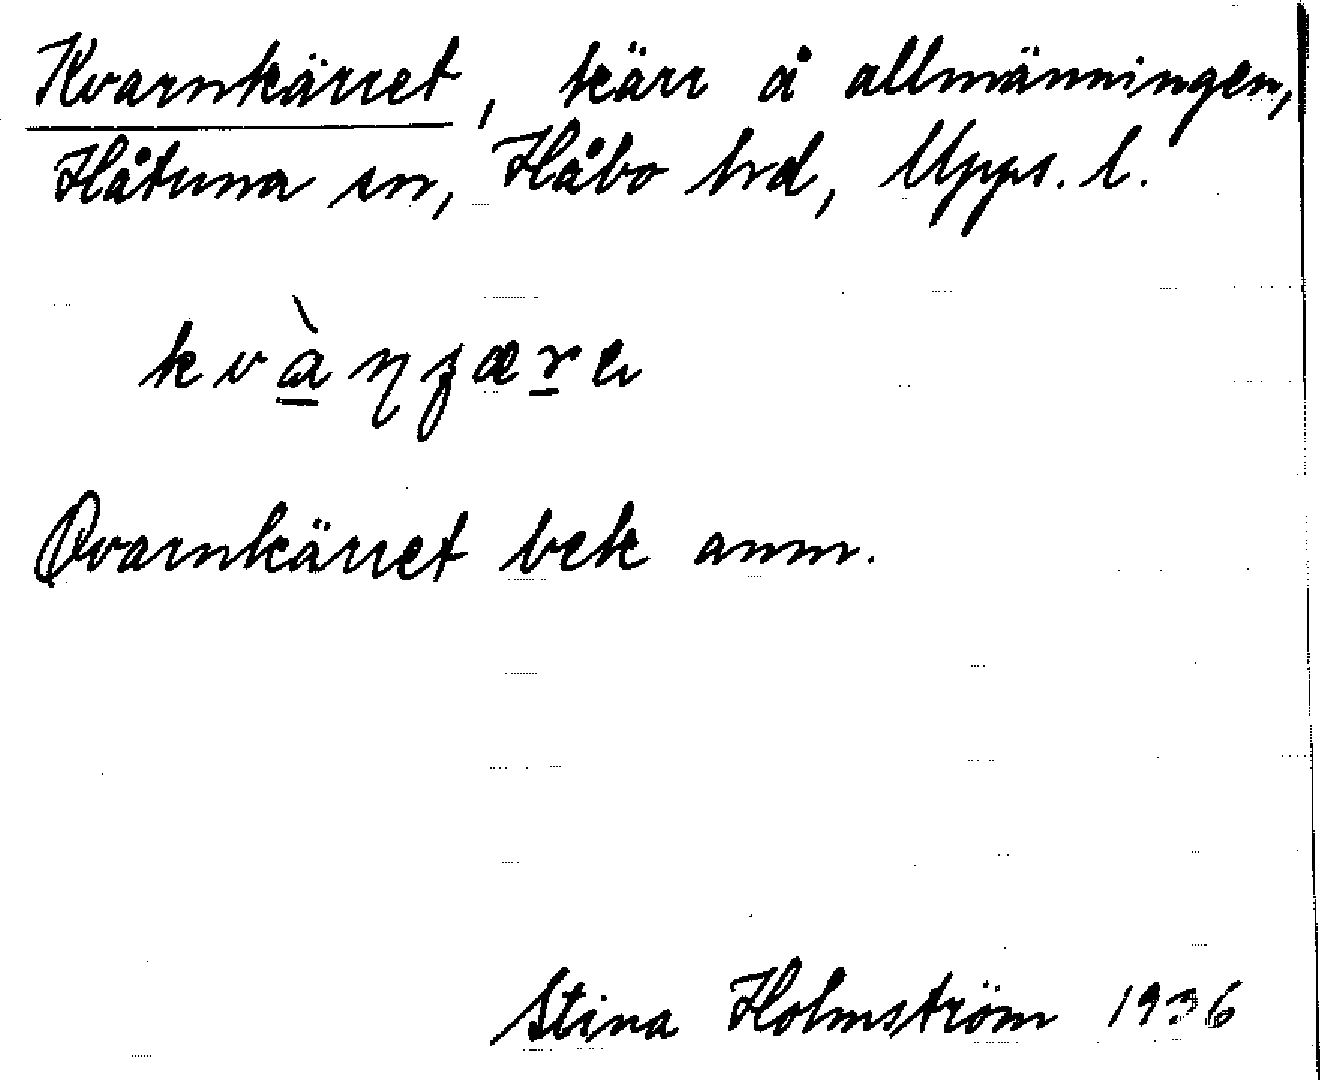 Kvarnkärret, kärr å allmänningen,
Håtuna sn, Håbo hrd, Upps. l.
kvàŋʒærə
Qvarnkärret bek anm.
Stina Holmström 1936